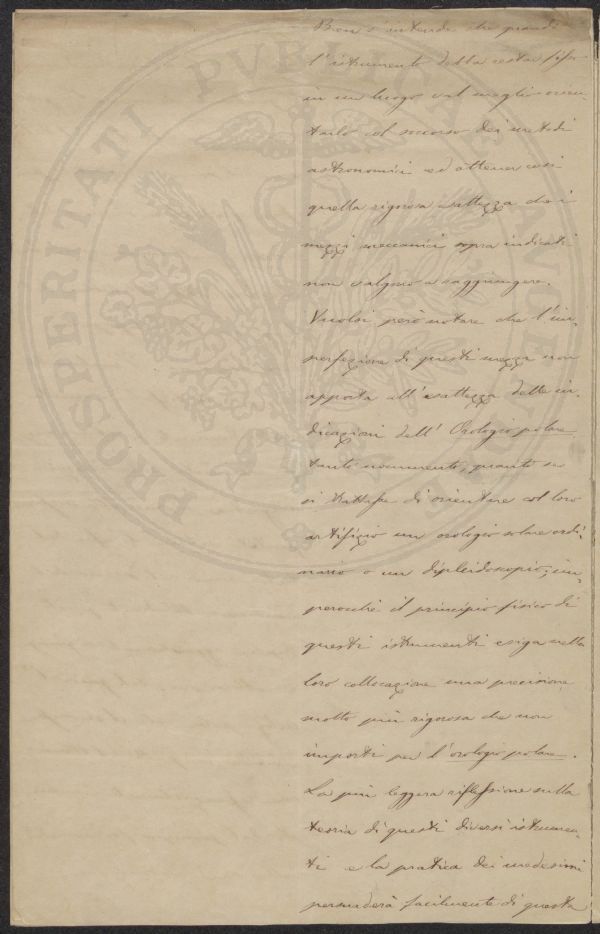 PROSPERITATI PVBLICAE AVGENDAE
Ben s'intende che quando
l'istrumento debba restar fisso
in un luogo val meglio orien-
tarlo col soccorso dei metodi
astronomici ed ottener così
quella rigorosa esattezza che i
mezzi meccanici sopra indicati
non valgono a raggiungere.
Vuolsi però notare che l'im-
perfezione di questi mezzi non
apporta all'esattezza delle in-
dicazioni dell'Orologio polare
tanto nocumento, quanto se
si trattasse di orientare col loro
artifizio un orologio solare ordi-
nario o un dipleidoscopio; im-
perocchè il principio fisico di
questi istrumenti esiga nella
loro collocazione una precisione
molto più rigorosa che non
importi per l'orologio polare.
La più leggera riflessione sulla
teoria di questi diversi istrumen-
ti e la pratica dei medesimi
persuaderà facilmente di questa